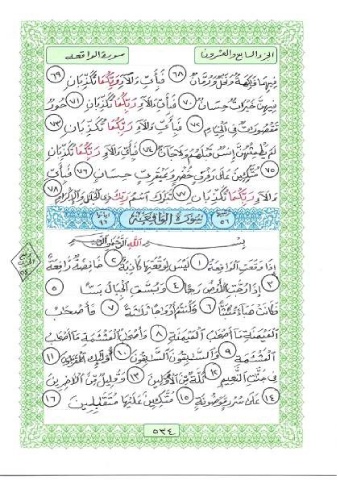 الجزء السابع والعشرون
سورة الواقعة
فِيهِمَا فَٰكِهَةٌ وَنَخْلٌ وَرُمَّانٌ ٦٨ فَبِأَيِّ ءَالَآءِ رَبِّكُمَا تُكَذِّبَانِ ٦٩
فِيهِنَّ خَيْرَٰتٌ حِسَانٌ ٧٠ فَبِأَيِّ ءَالَآءِ رَبِّكُمَا تُكَذِّبَانِ ٧١ حُورٌ
مَّقْصُورَٰتٌ فِي الْخِيَامِ ٧٢ فَبِأَيِّ ءَالَآءِ رَبِّكُمَا تُكَذِّبَانِ ٧٣
لَمْ يَطْمِثْهُنَّ إِنسٌ قَبْلَهُمْ وَلَا جَآنٌّ ٧٤ فَبِأَيِّ ءَالَآءِ رَبِّكُمَا تُكَذِّبَانِ
٧٥ مُتَّكِـِٔينَ عَلَىٰ رَفْرَفٍ خُضْرٍ وَعَبْقَرِيٍّ حِسَانٍ ٧٦ فَبِأَيِّ
ءَالَآءِ رَبِّكُمَا تُكَذِّبَانِ ٧٧ تَبَٰرَكَ اسْمُ رَبِّكَ ذِي الْجَلَٰلِ وَالْإِكْرَامِ ٧٨
٥٦ سُورَةُ الْوَاقِعَةِ ٩٦
بِسْمِ اللَّهِ الرَّحْمَٰنِ الرَّحِيمِ
إِذَا وَقَعَتِ الْوَاقِعَةُ ١ لَيْسَ لِوَقْعَتِهَا كَاذِبَةٌ ٢ خَافِضَةٌ رَّافِعَةٌ
٣ إِذَا رُجَّتِ الْأَرْضُ رَجًّا ٤ وَبُسَّتِ الْجِبَالُ بَسًّا ٥
فَكَانَتْ هَبَآءً مُّنۢبَثًّا ٦ وَكُنتُمْ أَزْوَٰجًا ثَلَٰثَةً ٧ فَأَصْحَٰبُ
الْمَيْمَنَةِ مَآ أَصْحَٰبُ الْمَيْمَنَةِ ٨ وَأَصْحَٰبُ الْمَشْـَٔمَةِ مَآ أَصْحَٰبُ
الْمَشْـَٔمَةِ ٩ وَالسَّٰبِقُونَ السَّٰبِقُونَ ١٠ أُوْلَٰٓئِكَ الْمُقَرَّبُونَ ١١
فِي جَنَّٰتِ النَّعِيمِ ١٢ ثُلَّةٌ مِّنَ الْأَوَّلِينَ ١٣ وَقَلِيلٌ مِّنَ الْأٓخِرِينَ
١٤ عَلَىٰ سُرُرٍ مَّوْضُونَةٍ ١٥ مُّتَّكِـِٔينَ عَلَيْهَا مُتَقَٰبِلِينَ ١٦
٥٣٤